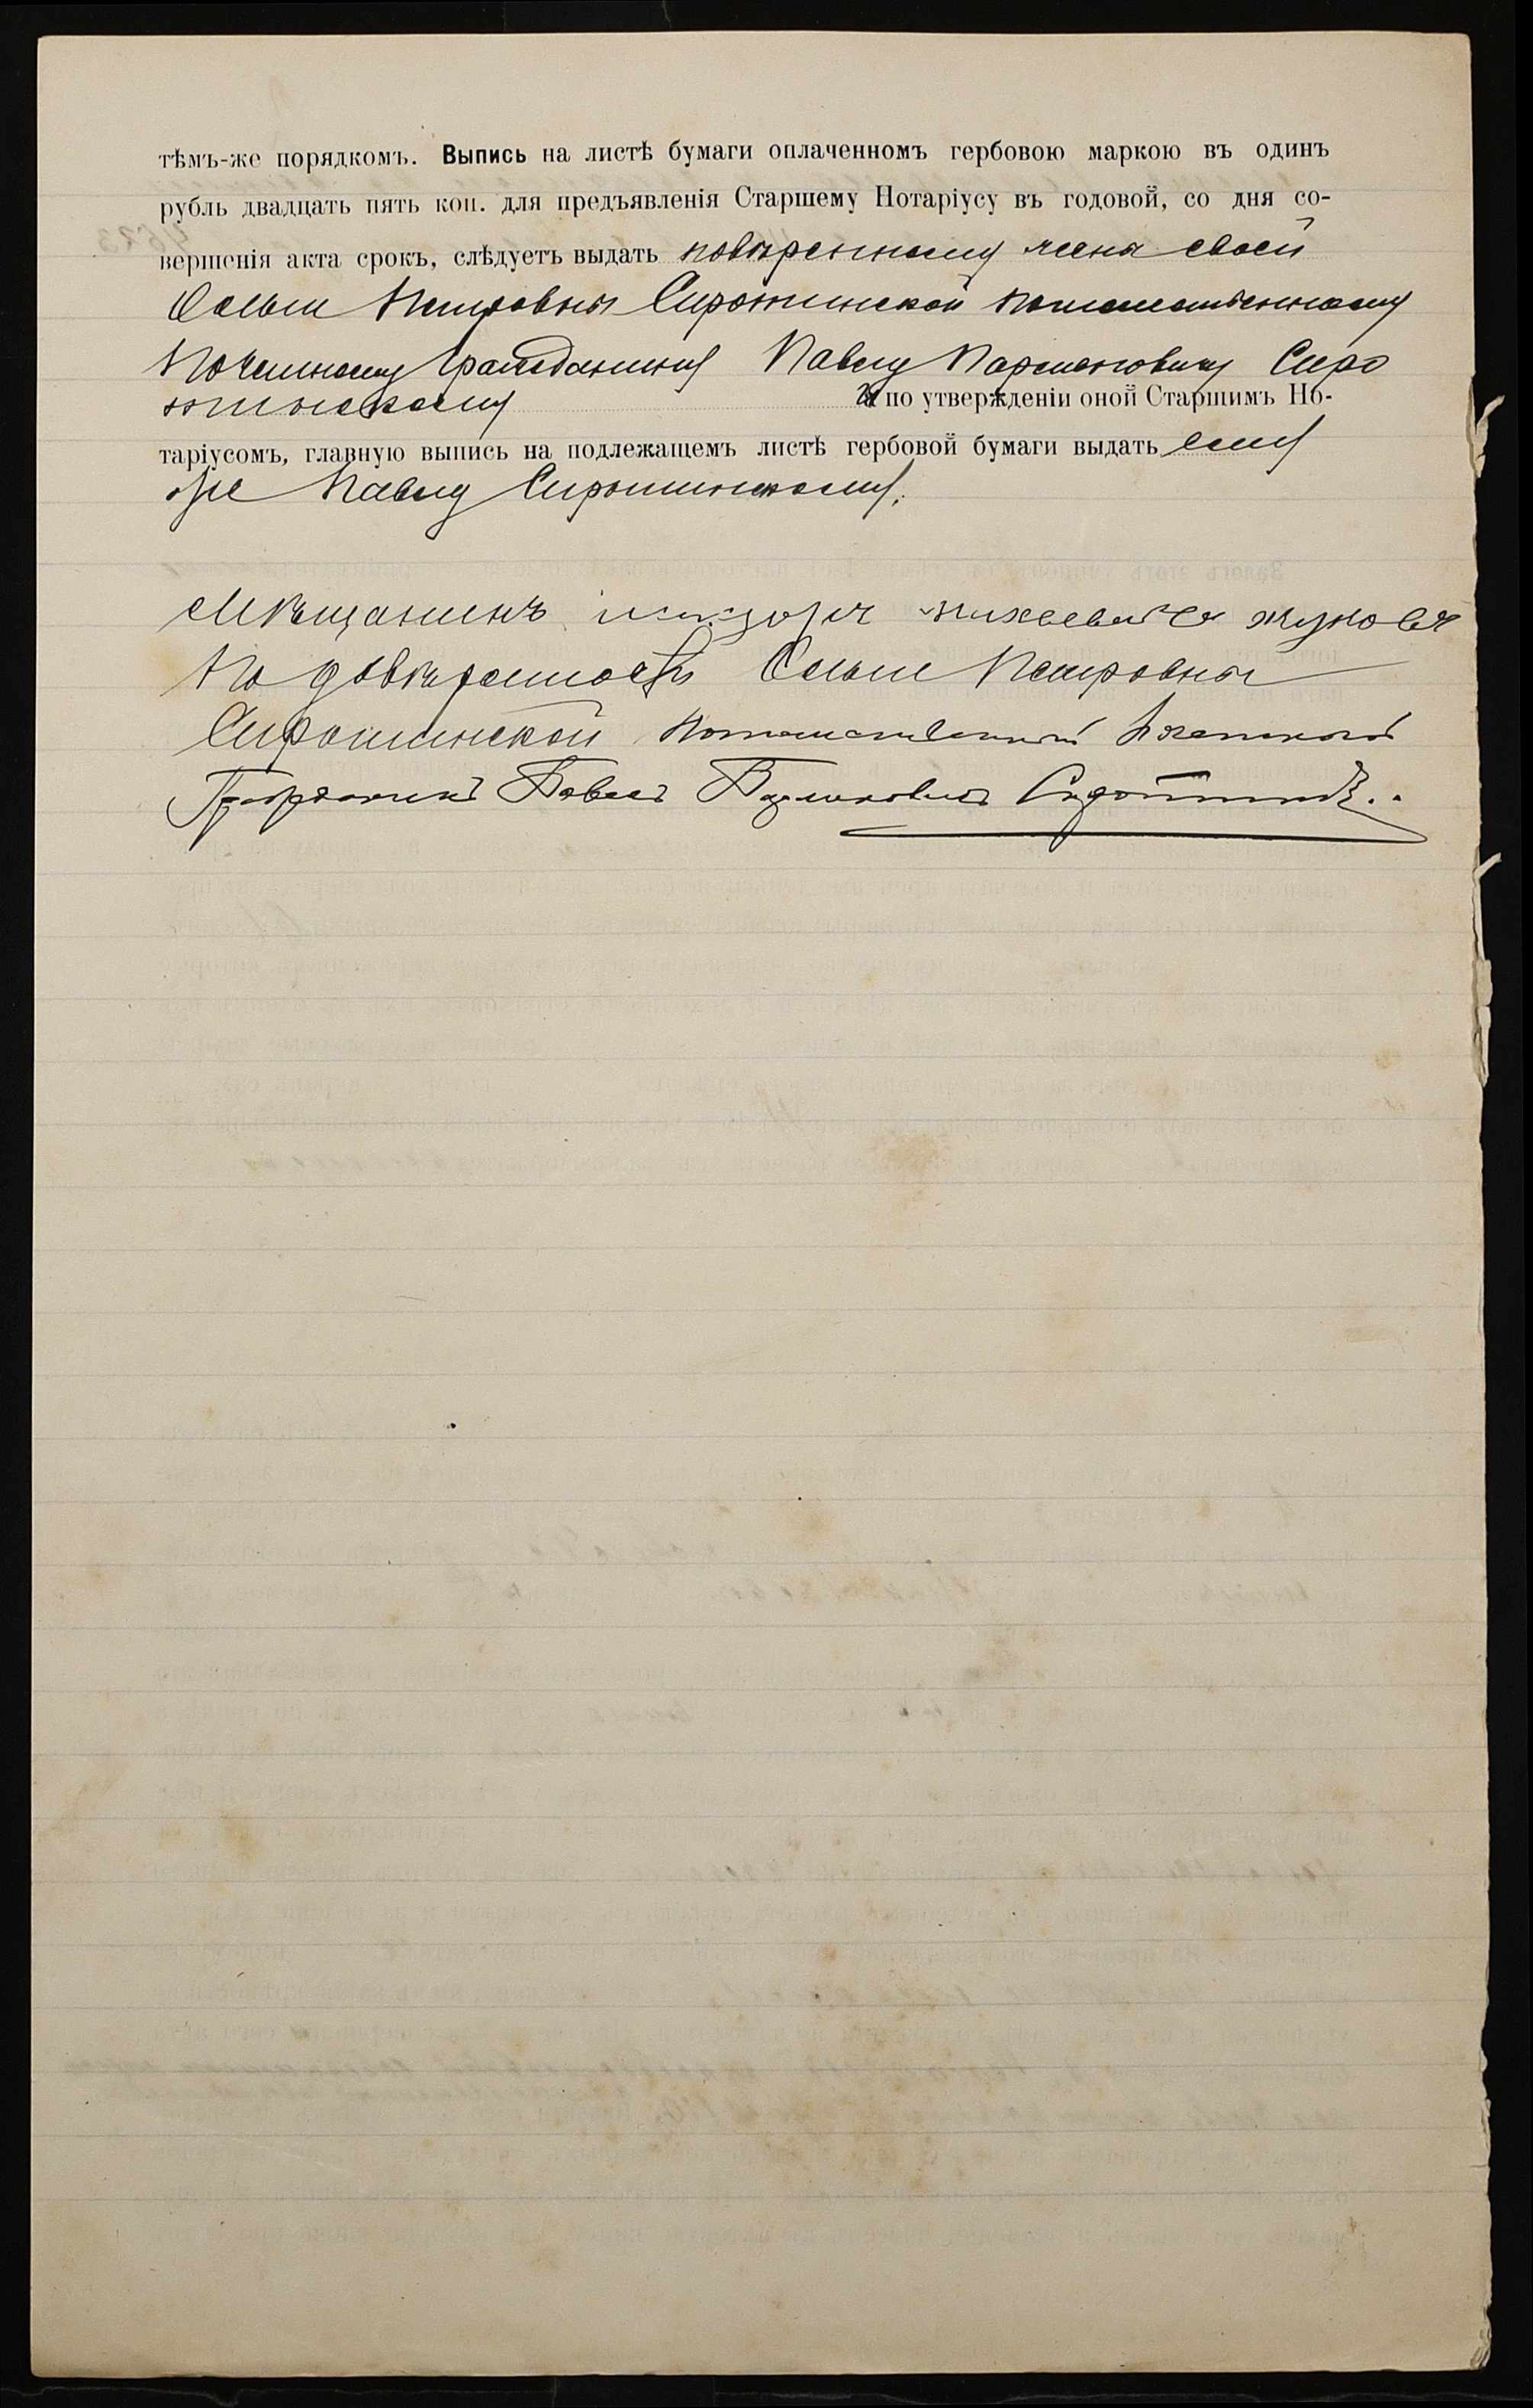 тѣмъ-же порядкомъ. Выпись на листѣ бумаги оплаченномъ гербовою маркою въ одинъ
рубль двадцать пять коп. для предъявленія Старшему Нотаріусу въ годовой, со дня со-
вершенія акта срокъ, слѣдуетъ выдать повѣренному жены своей
Ольги Петровны Сиротинской потомственному
Почетному Гражданину Павлу Парменовичу Сиро
тинскому а по утвержденіи оной Старшимъ Но-
таріусомъ, главную выпись на подлежащемъ листѣ гербовой бумаги выдать ему
же Павлу Сиротинскому.
Мѣщанинъ Михеевичъ Жуковъ
По довѣренности Ольги Петровны
Сиротинской потомственный Почетный
Гражданинъ Павелъ Парменовичъ Сиротинскій